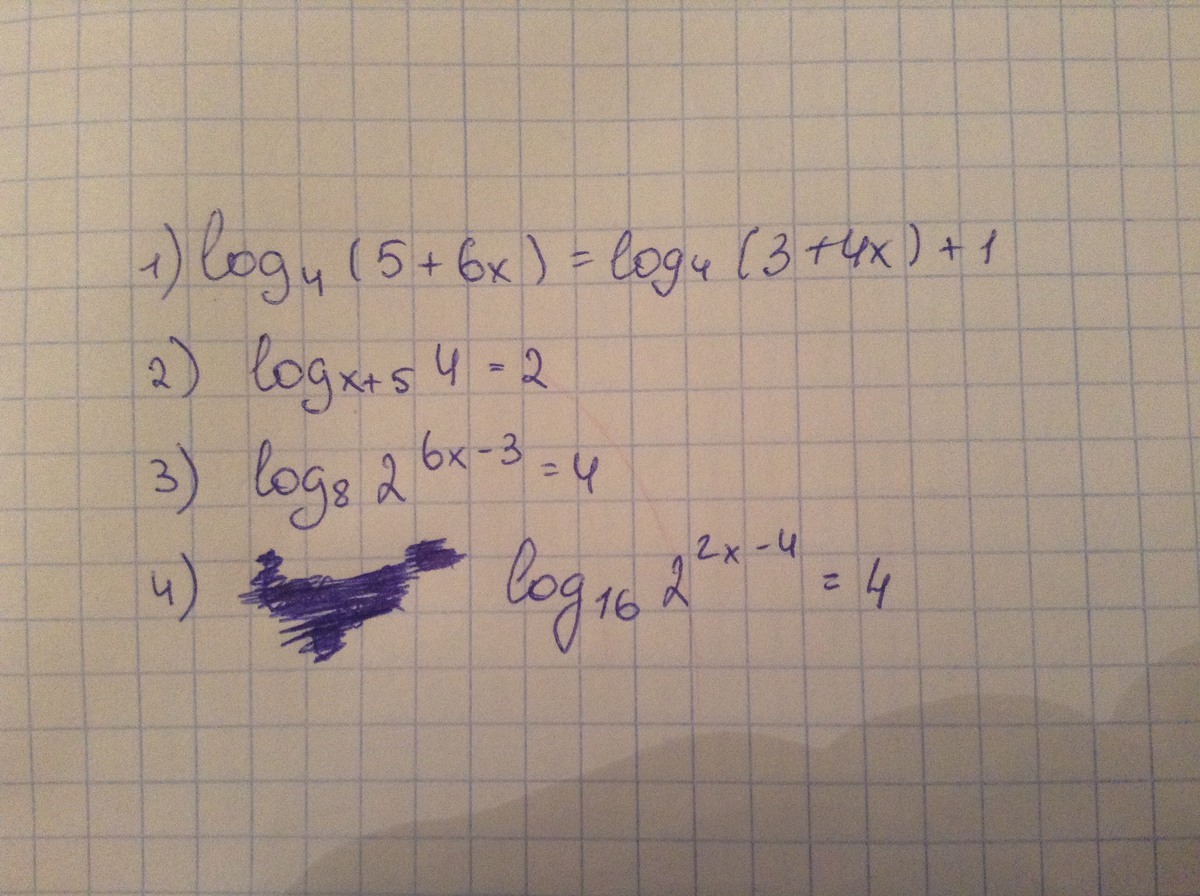 1) log₄ (5 + 6x) = log₄ (3 + 4x) + 1
2) logₓ₊₅ 4 = 2
3) log₈ 2^(6x - 3) = 4
4) log₁₆ 2^(2x - 4) = 4